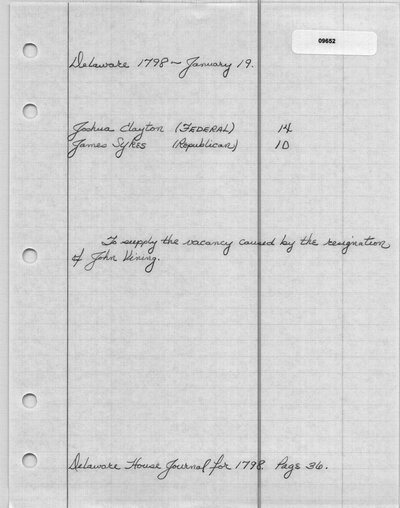 09652
Delaware 1798 ~ January 19.
Joshua Clayton (FEDERAL) 14
James Sykes (Republican) 10
To supply the vacancy caused by the resignation
of John Vining.
Delaware House Journal for 1798 Page 36.